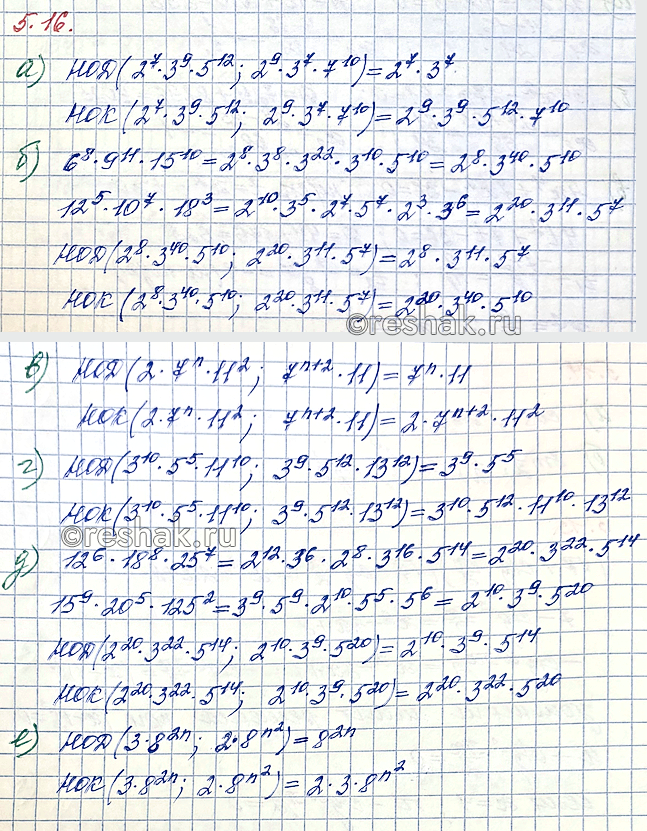 5.16.
а) НОД(2⁷·3⁹·5¹²; 2⁹·3⁷·7¹⁰)=2⁷·3⁷.
НОК(2⁷·3⁹·5¹²; 2⁹·3⁷·7¹⁰)=2⁹·3⁹·5¹²·7¹⁰
б) 6⁸·9¹¹·15¹⁰=2⁸·3⁸·3²²·3¹⁰·5¹⁰=2⁸·3⁴⁰·5¹⁰
12⁵·10⁷·18³=2¹⁰·3⁵·2⁷·5⁷·2³·3⁶=2²⁰·3¹¹·5⁷
НОД(2⁸·3⁴⁰·5¹⁰; 2²⁰·3¹¹·5⁷)=2⁸·3¹¹·5⁷
НОК(2⁸·3⁴⁰·5¹⁰; 2²⁰·3¹¹·5⁷)=2²⁰·3⁴⁰·5¹⁰
©reshak.ru
в) НОД(2·7ⁿ·11²; 7ⁿ⁺²·11)=7ⁿ·11
НОК(2·7ⁿ·11²; 7ⁿ⁺²·11)=2·7ⁿ⁺²·11²
г) НОД(3¹⁰·5⁵·11¹⁰; 3⁹·5¹²·13¹²)=3⁹·5⁵
НОК(3¹⁰·5⁵·11¹⁰; 3⁹·5¹²·13¹²)=3¹⁰·5¹²·11¹⁰·13¹²
©reshak.ru
д) 12⁶·18⁸·25⁷=2¹²·3⁶·2⁸·3¹⁶·5¹⁴=2²⁰·3²²·5¹⁴
15⁹·20⁵·125²=3⁹·5⁹·2¹⁰·5⁵·5⁶=2¹⁰·3⁹·5²⁰
НОД(2²⁰·3²²·5¹⁴; 2¹⁰·3⁹·5²⁰)=2¹⁰·3⁹·5¹⁴
НОК(2²⁰·3²²·5¹⁴; 2¹⁰·3⁹·5²⁰)=2²⁰·3²²·5²⁰
е) НОД(3·8²ⁿ; 2·8^(n²))=8²ⁿ
НОК(3·8²ⁿ; 2·8^(n²))=2·3·8^(n²)